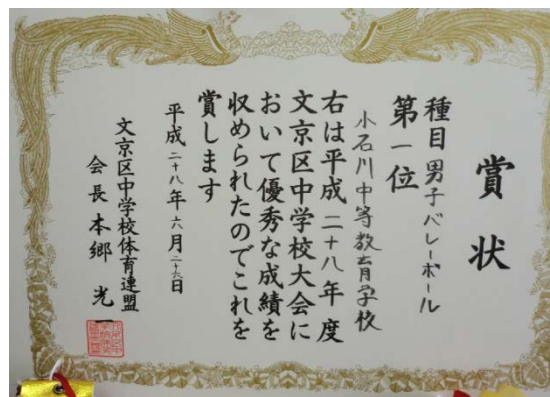 賞状
種目男子バレーボール
第一位
小石川中等教育学校
右は平成二十八年度
文京区中学校大会に
おいて優秀な成績を
収められたのでこれを
賞します
平成二十八年六月二十六日
文京区中学校体育連盟
会長本郷光一